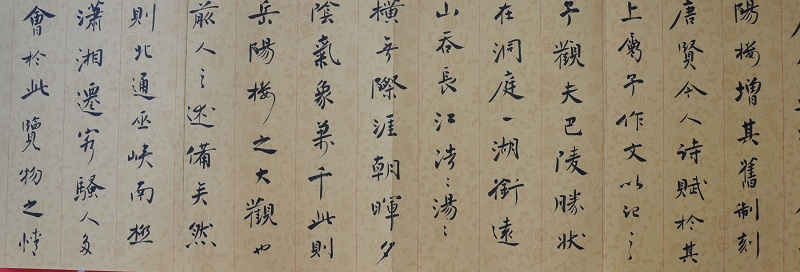 陽楼增其舊制刻
唐賢今人詩賦於其
上屬予作文以記之
予觀夫巴陵勝狀
在洞庭一湖銜遠
山吞長江浩〻湯〻
橫无際涯朝暉夕
陰氣象萬千此則
岳陽楼之大觀也
前人之述備矣然
則北通巫峽南極
瀟湘遷客騷人多
會於此覽物之情